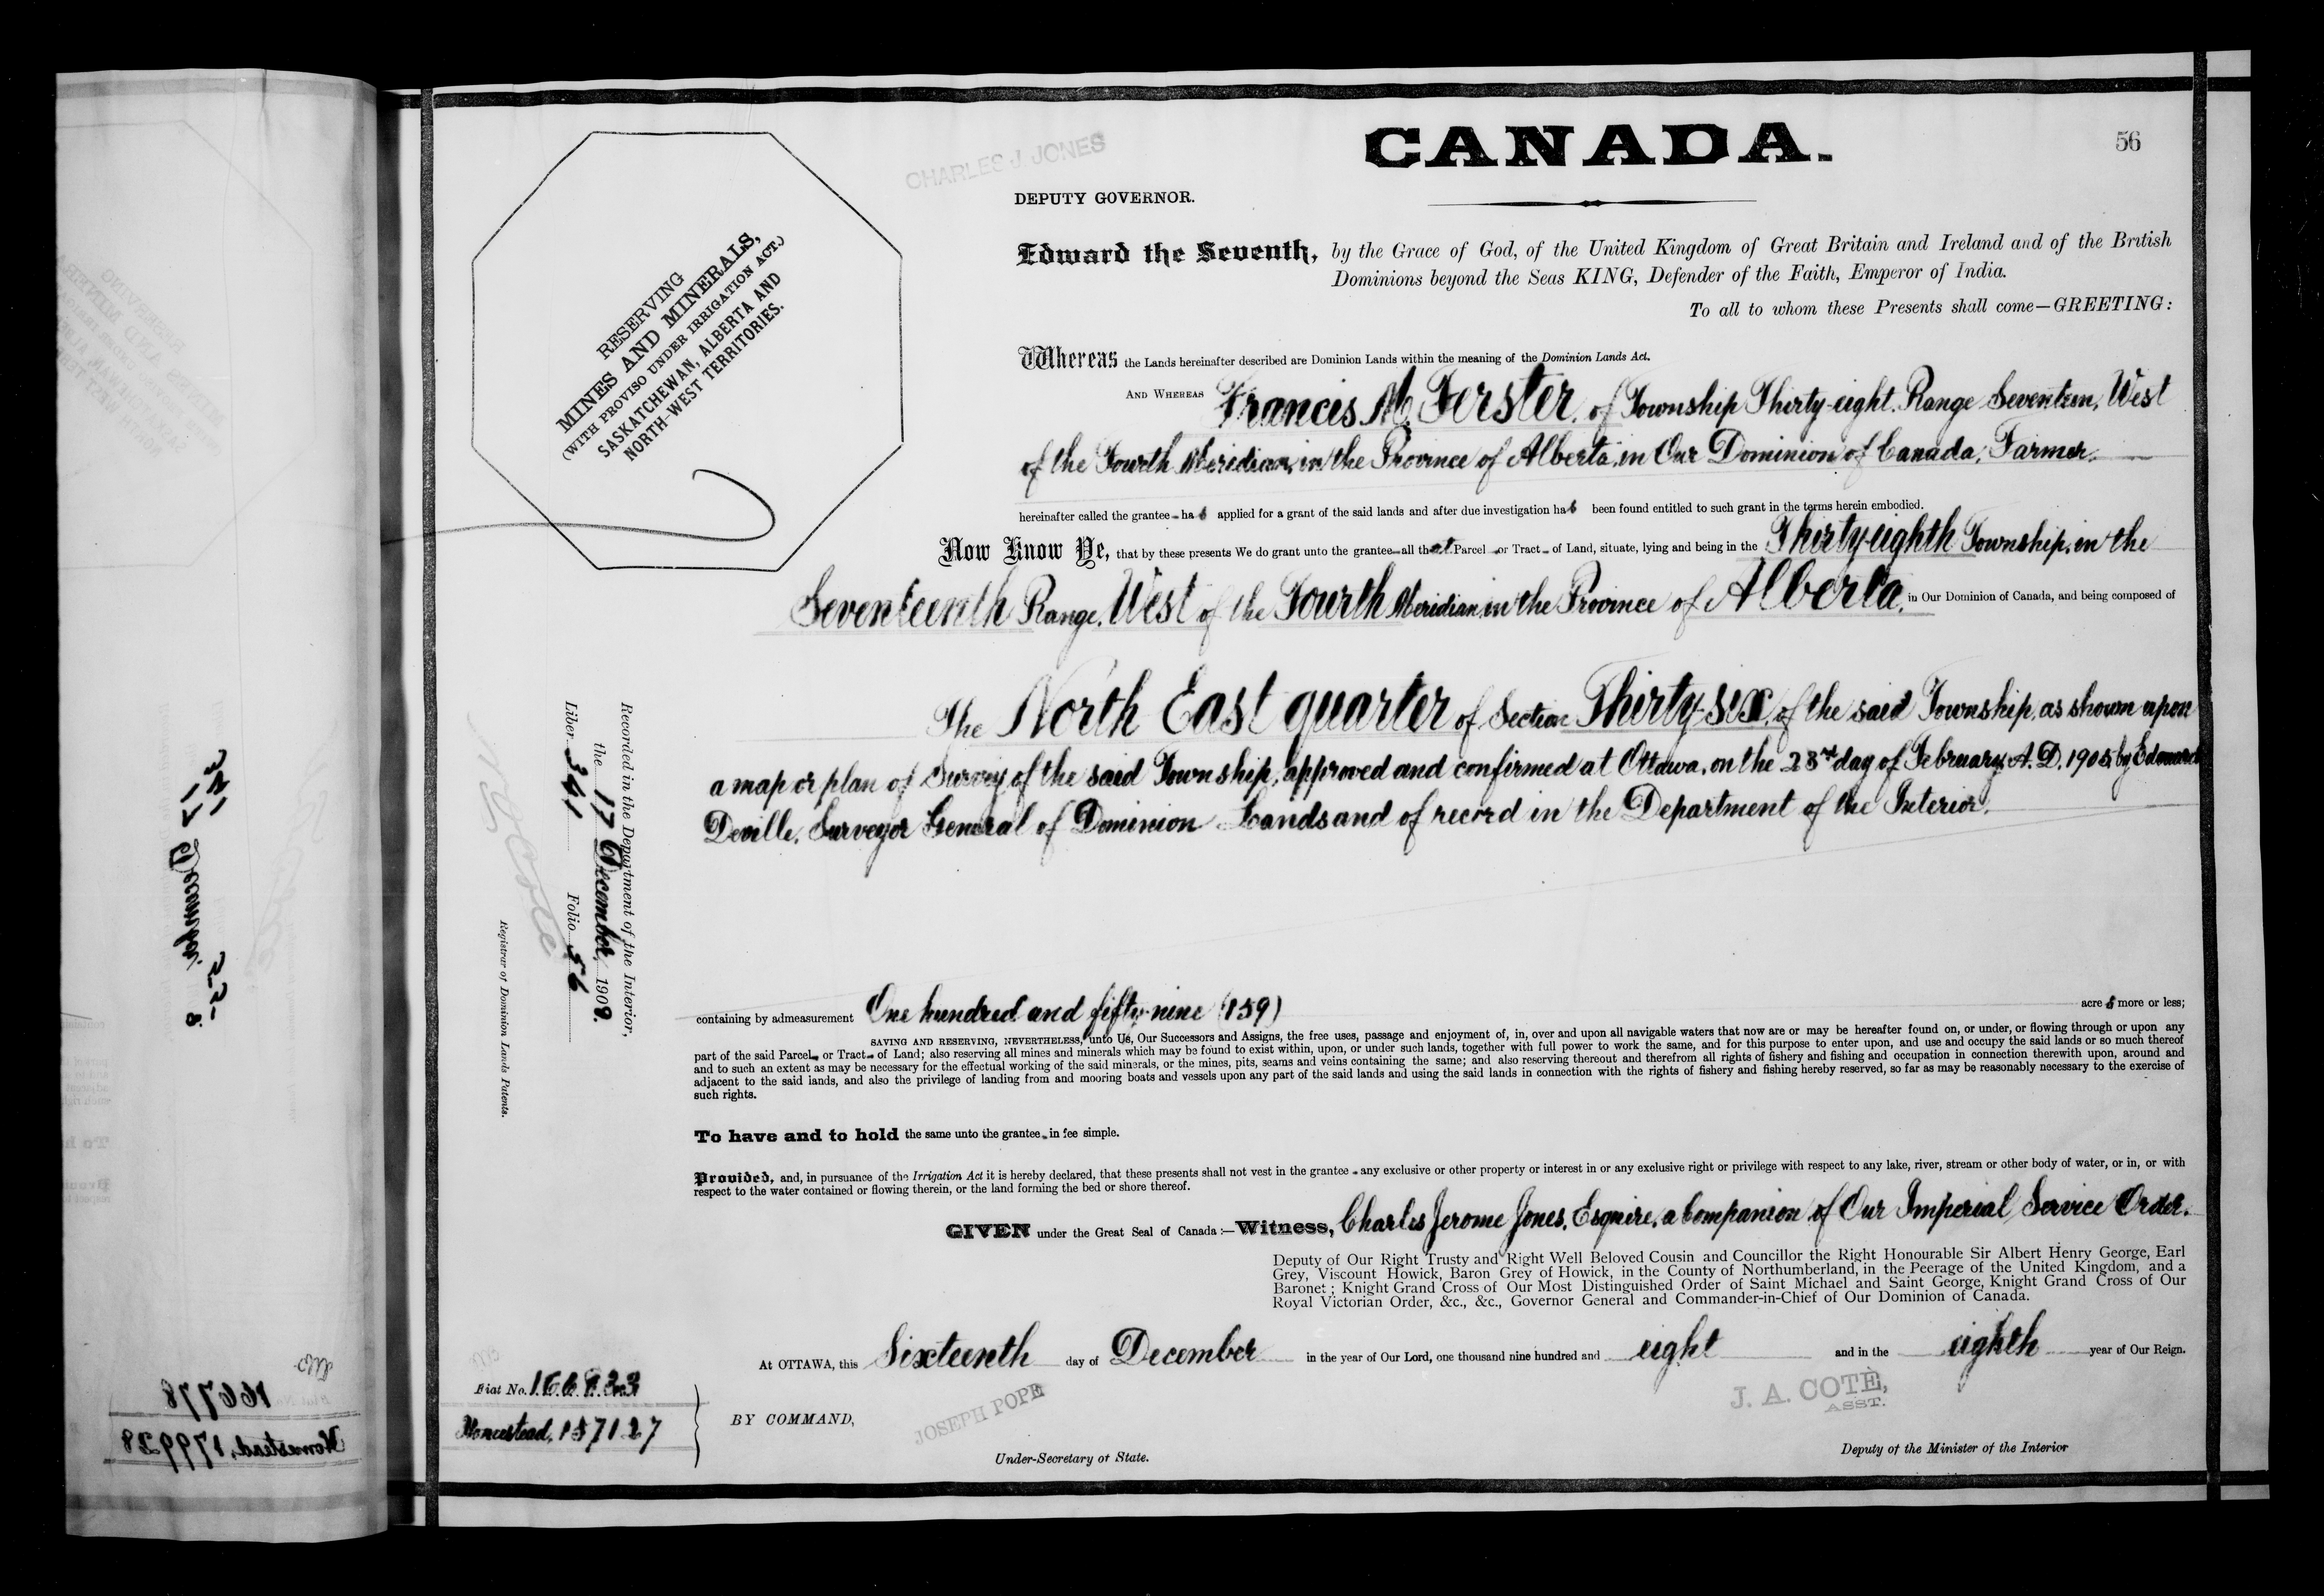 CANADA.
56
CHARLES J. JONES
DEPUTY GOVERNOR.
RESERVING
MINES AND MINERALS,
(WITH PROVISO UNDER IRRIGATION ACT.)
SASKATCHEWAN, ALBERTA AND
NORTH-WEST TERRITORIES.
Edward the Seventh, by the Grace of God, of the United Kingdom of Great Britain and Ireland and of the British
Dominions beyond the Seas KING, Defender of the Faith, Emperor of India.
To all to whom these Presents shall come—GREETING:
Whereas the Lands hereinafter described are Dominion Lands within the meaning of the Dominion Lands Act.
AND WHEREAS Francis M. Ferster, of Township Thirty-eight, Range Seventeen, West
of the Fourth Meridian, in the Province of Alberta, in Our Dominion of Canada, Farmer.
hereinafter called the grantee has applied for a grant of the said lands and after due investigation has been found entitled to such grant in the terms herein embodied.
Now Know Ye, that by these presents We do grant unto the grantee all that Parcel or Tract of Land, situate, lying and being in the Thirty-eighth Township, in the
Seventeenth Range, West of the Fourth Meridian in the Province of Alberta, in Our Dominion of Canada, and being composed of
The North East quarter of Section Thirty-six, of the said Township, as shown upon
a map or plan of Survey of the said Township, approved and confirmed at Ottawa, on the 23rd day of February, A.D. 1905, by Edouard
Deville, Surveyor General of Dominion Lands and of record in the Department of the Interior.
containing by admeasurement One hundred and fifty-nine (159) acres more or less;
SAVING AND RESERVING, NEVERTHELESS, unto Us, Our Successors and Assigns, the free uses, passage and enjoyment of, in, over and upon all navigable waters that now are or may be hereafter found on, or under, or flowing through or upon any
part of the said Parcel or Tract of Land; also reserving all mines and minerals which may be found to exist within, upon, or under such lands, together with full power to work the same, and for this purpose to enter upon, and use and occupy the said lands or so much thereof
and to such an extent as may be necessary for the effectual working of the said minerals, or the mines, pits, seams and veins containing the same; and also reserving thereout and therefrom all rights of fishery and fishing and occupation in connection therewith upon, around and
adjacent to the said lands, and also the privilege of landing from and mooring boats and vessels upon any part of the said lands and using the said lands in connection with the rights of fishery and fishing hereby reserved, so far as may be reasonably necessary to the exercise of
such rights.
To have and to hold the same unto the grantee in fee simple.
Provided, and, in pursuance of the Irrigation Act it is hereby declared, that these presents shall not vest in the grantee any exclusive or other property or interest in or any exclusive right or privilege with respect to any lake, river, stream or other body of water, or in, or with
respect to the water contained or flowing therein, or the land forming the bed or shore thereof.
GIVEN under the Great Seal of Canada:—Witness, Charles Jerome Jones, Esquire, a Companion of Our Imperial Service Order.
Deputy of Our Right Trusty and Right Well Beloved Cousin and Councillor the Right Honourable Sir Albert Henry George, Earl
Grey, Viscount Howick, Baron Grey of Howick, in the County of Northumberland, in the Peerage of the United Kingdom, and a
Baronet; Knight Grand Cross of Our Most Distinguished Order of Saint Michael and Saint George, Knight Grand Cross of Our
Royal Victorian Order, &c., &c., Governor General and Commander-in-Chief of Our Dominion of Canada.
At OTTAWA, this Sixteenth day of December in the year of Our Lord, one thousand nine hundred and eight and in the eighth year of Our Reign.
BY COMMAND,
JOSEPH POPE
Under-Secretary of State.
J. A. COTÉ,
ASST.
Deputy of the Minister of the Interior
Recorded in the Department of the Interior,
the 17 December, 1908.
Liber 361 Folio 56
N G Cote
Registrar of Dominion Lands Patents.
Fiat No. 166823
Homestead, 157127
166778
Homestead, 179928